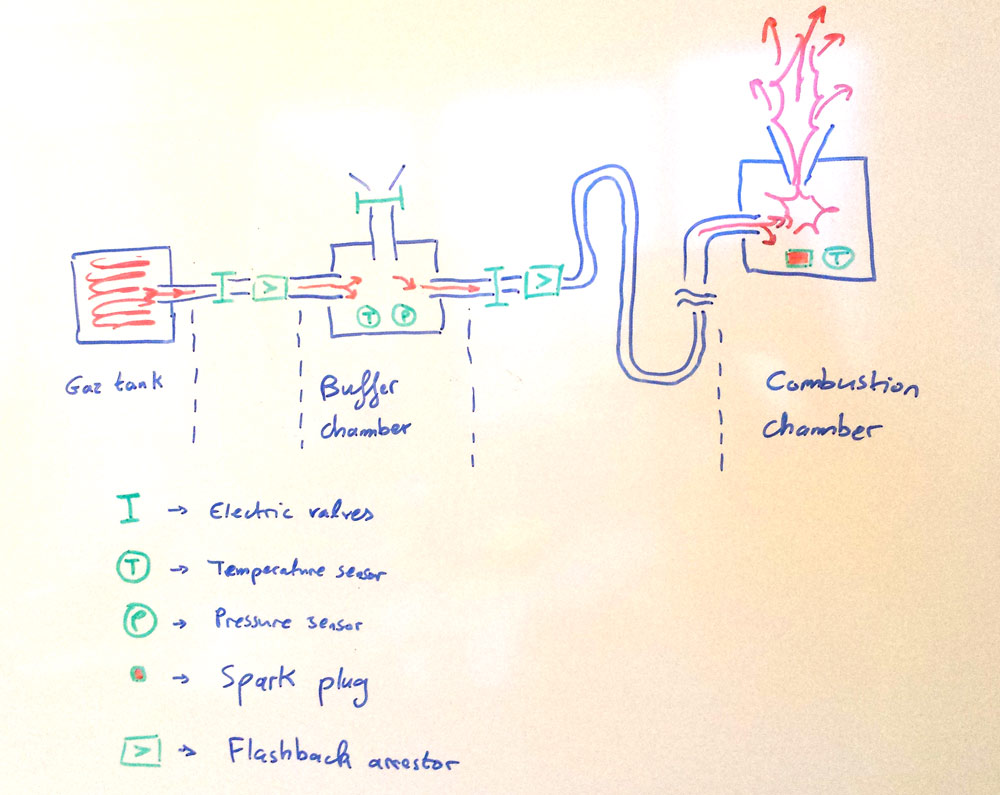 Gaz tank
Buffer
chamber
Combustion
chamber
T
P
T
I → Electric valves
T → Temperature sensor
P → Pressure sensor
→ Spark plug
> → Flashback arrestor